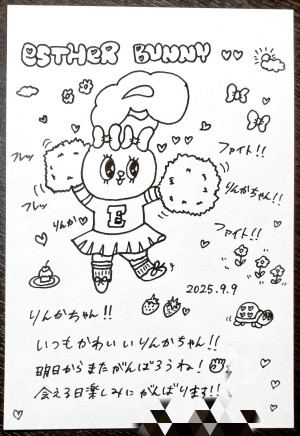 ESTHER BUNNY
フレッ
フレッ
りんか
E
ファイト!!
りんかちゃん!!
ファイト!!
2025.9.9
りんかちゃん!!
いつもかわいいりんかちゃん!!
明日からまたがんばろうね!
会える日楽しみにがんばります!!